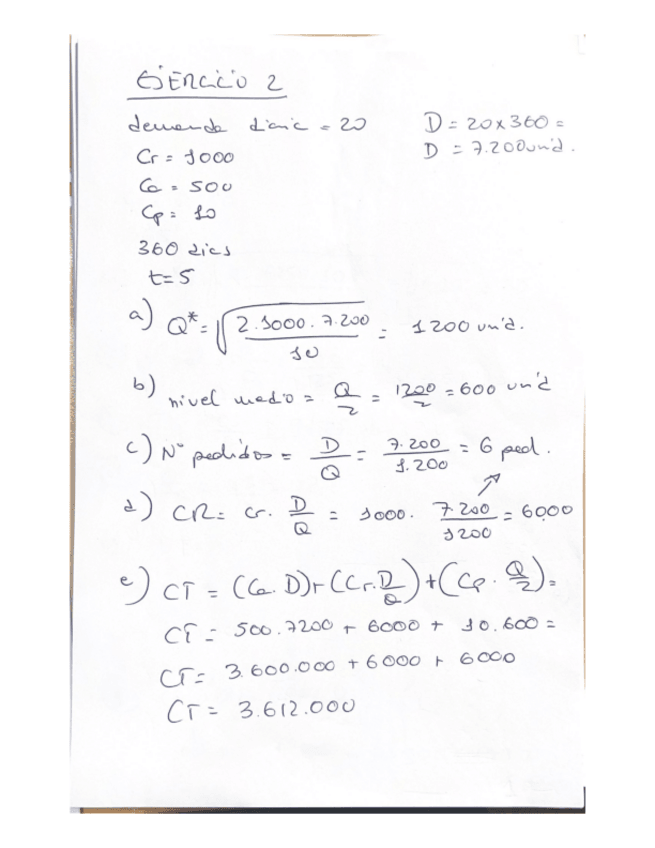 EJERCICIO 2
demanda diaria = 20
D = 20x360 =
D = 7.200 unid.
Cr = 1000
Ca = 500
Cp = 10
360 dias
t=5
a) Q* = √(2.1000.7.200 / 10) = 1200 unid.
b) nivel medio = Q/2 = 1200/2 = 600 unid
c) Nº pedidos = D/Q = 7.200/1.200 = 6 ped.
d) CR = Cr. D/Q = 1000. 7.200/1200 = 6000
e) CT = (Ca.D)+(Cr.D/Q)+(Cp.Q/2)=
CT = 500.7200 + 6000 + 10.600 =
CT = 3.600.000 + 6000 + 6000
CT = 3.612.000